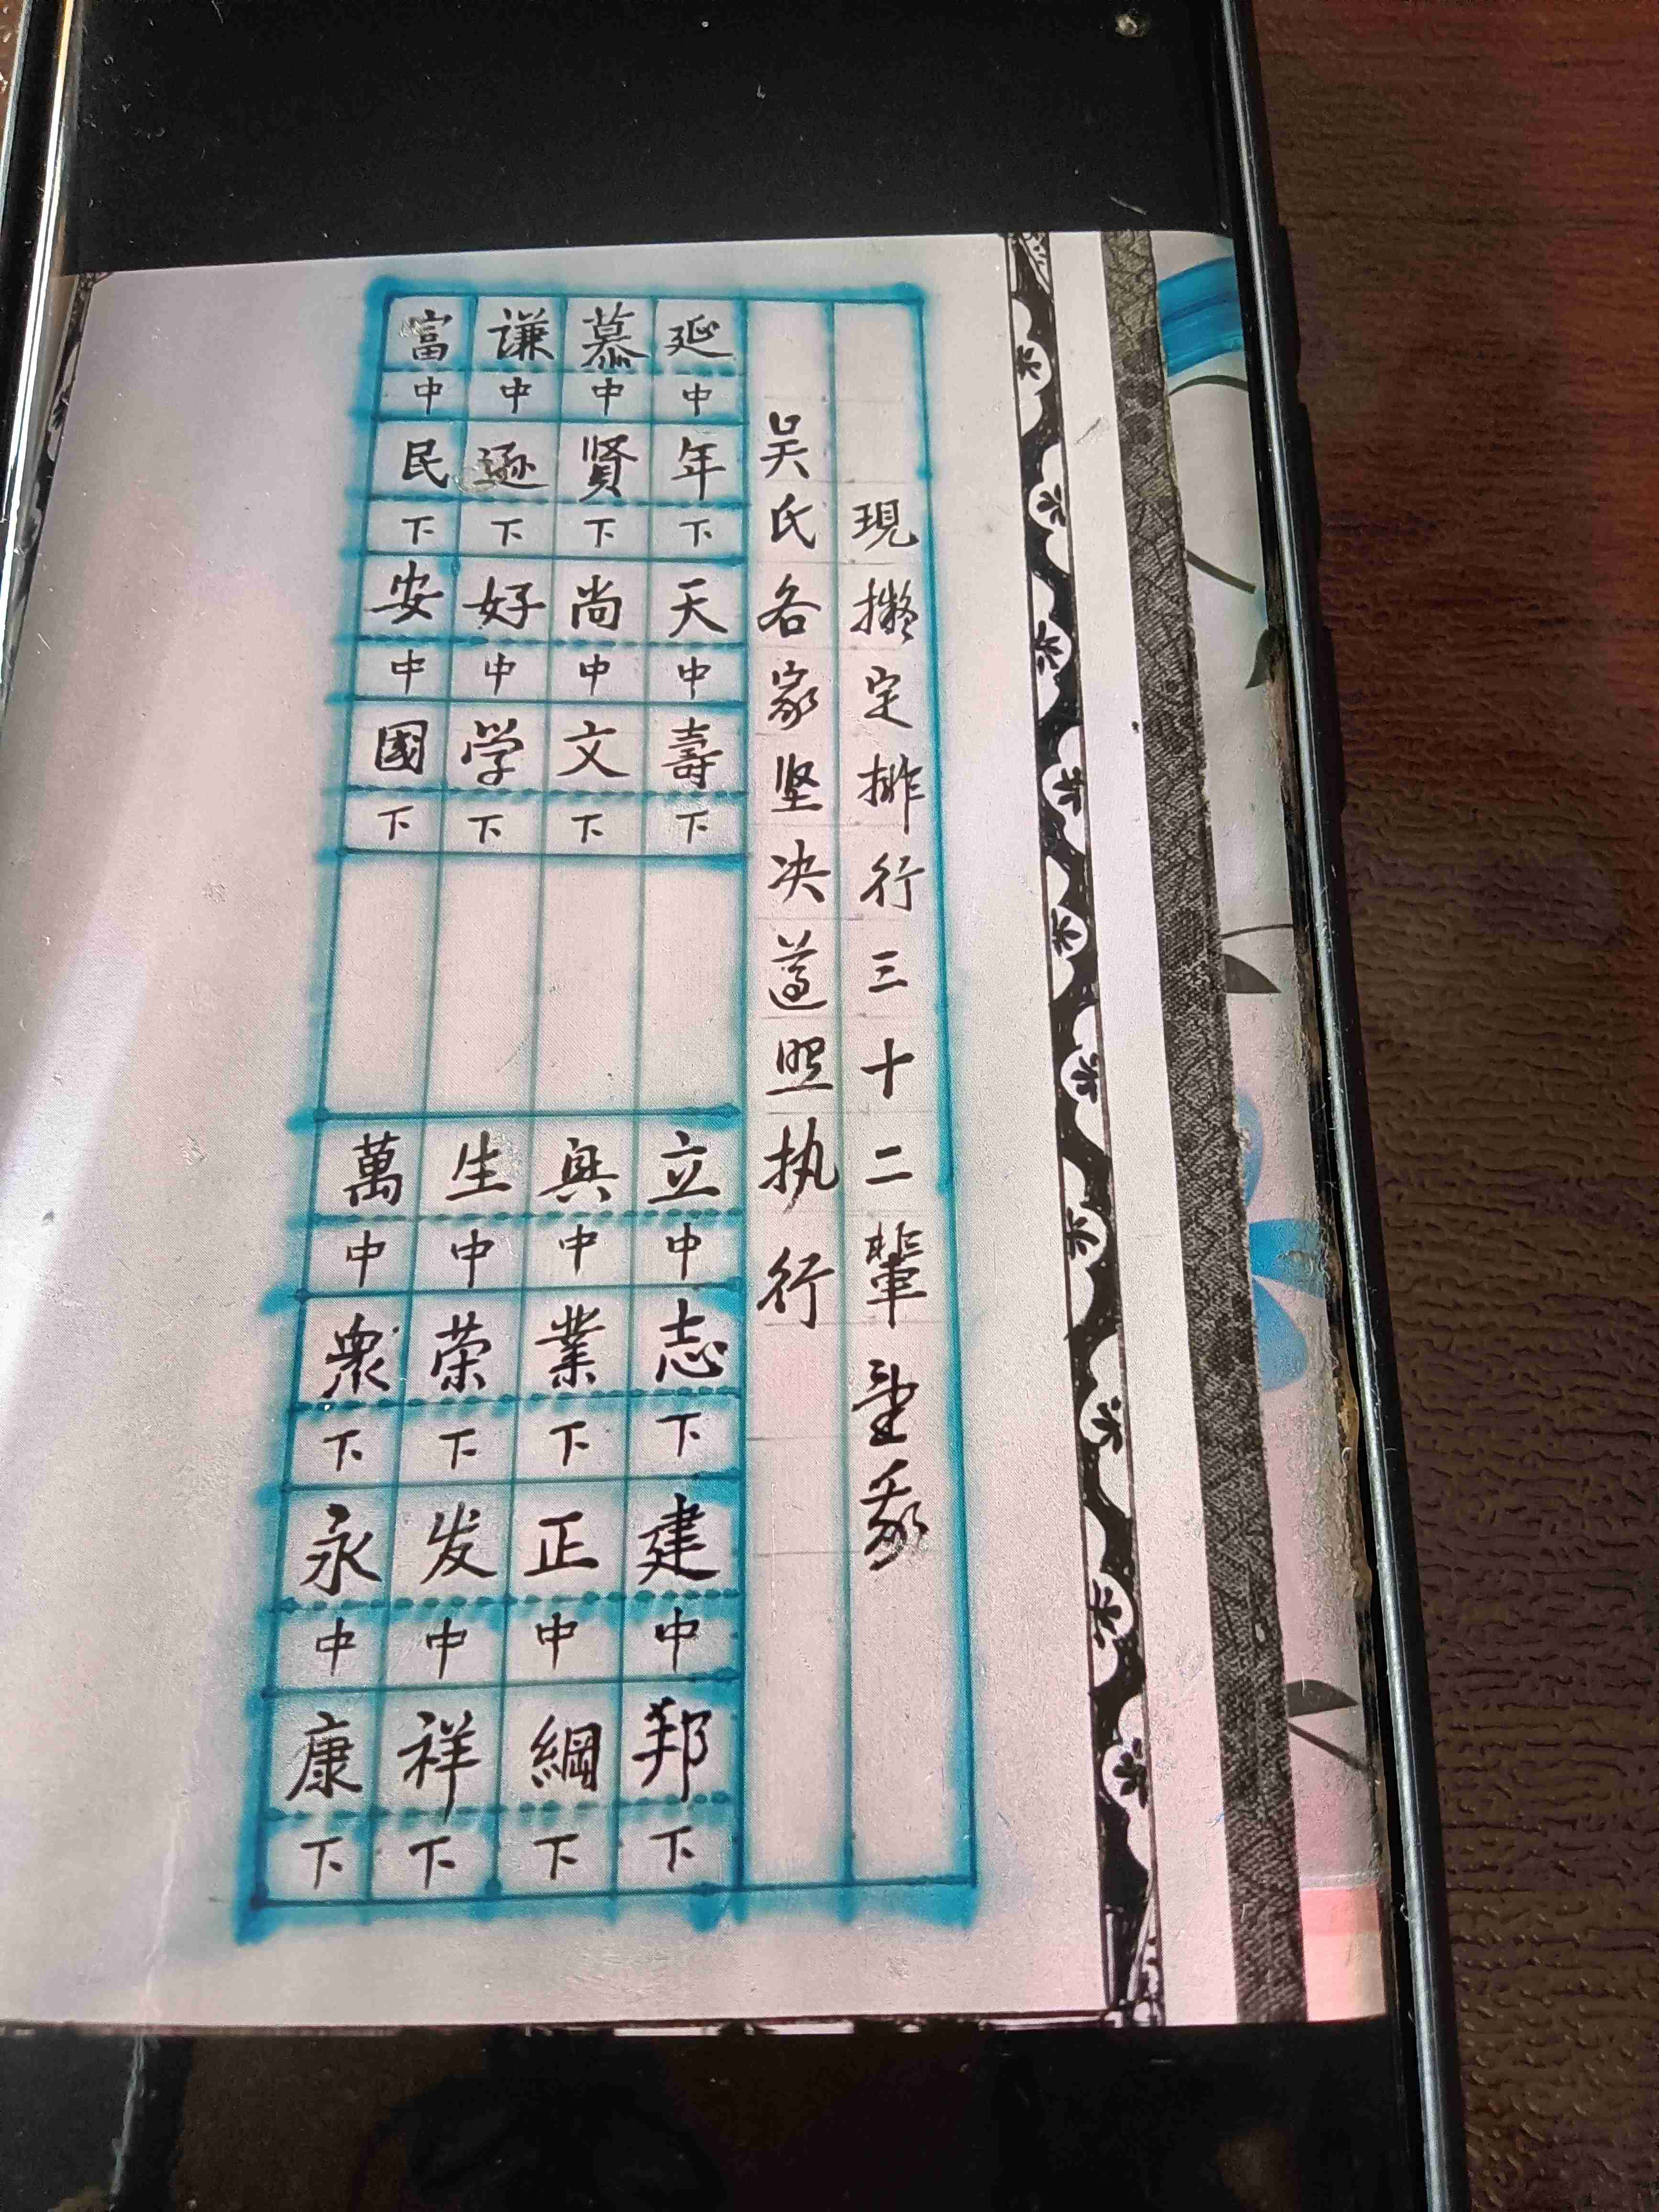 現擬定排行三十二輩望我
吴氏各家坚决遵照执行
延中年下天中壽下立中志下建中邦下
慕中賢下尚中文下興中業下正中綱下
谦中遜下好中学下生中荣下发中祥下
富中民下安中國下萬中衆下永中康下